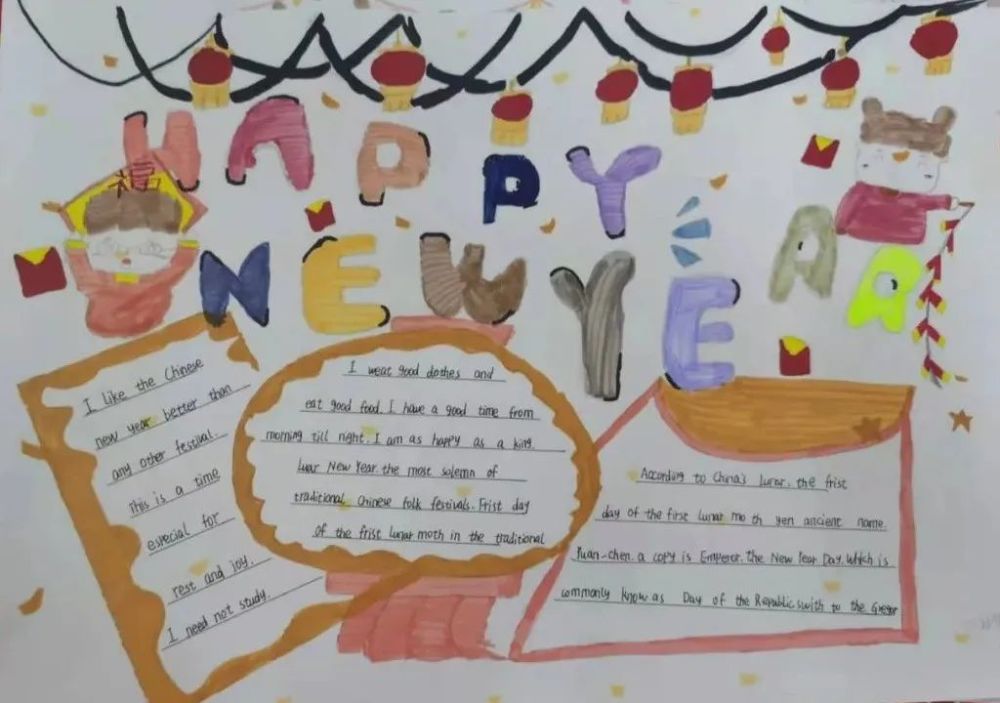 HAPPY
福
NEW YEAR
I like the Chinese
new year better than
any other festival.
This is a time
esvecial for
rest and joy.
I need not study.
I weat good dothes and
eat good food. I have a good time from
morning till night. I am as happy as a king.
lunar New Year the most solemn of
traditional Chinese folk festivals. Frist day
of the frist lunar moth in the traditional
According to China's lunar, the frist
day of the first lunar mo th yen ancient name
Yuan-chen. a copy is Emperor. the New Year Day. Which is
commonly know as Day of the Republic swith to the Gregor